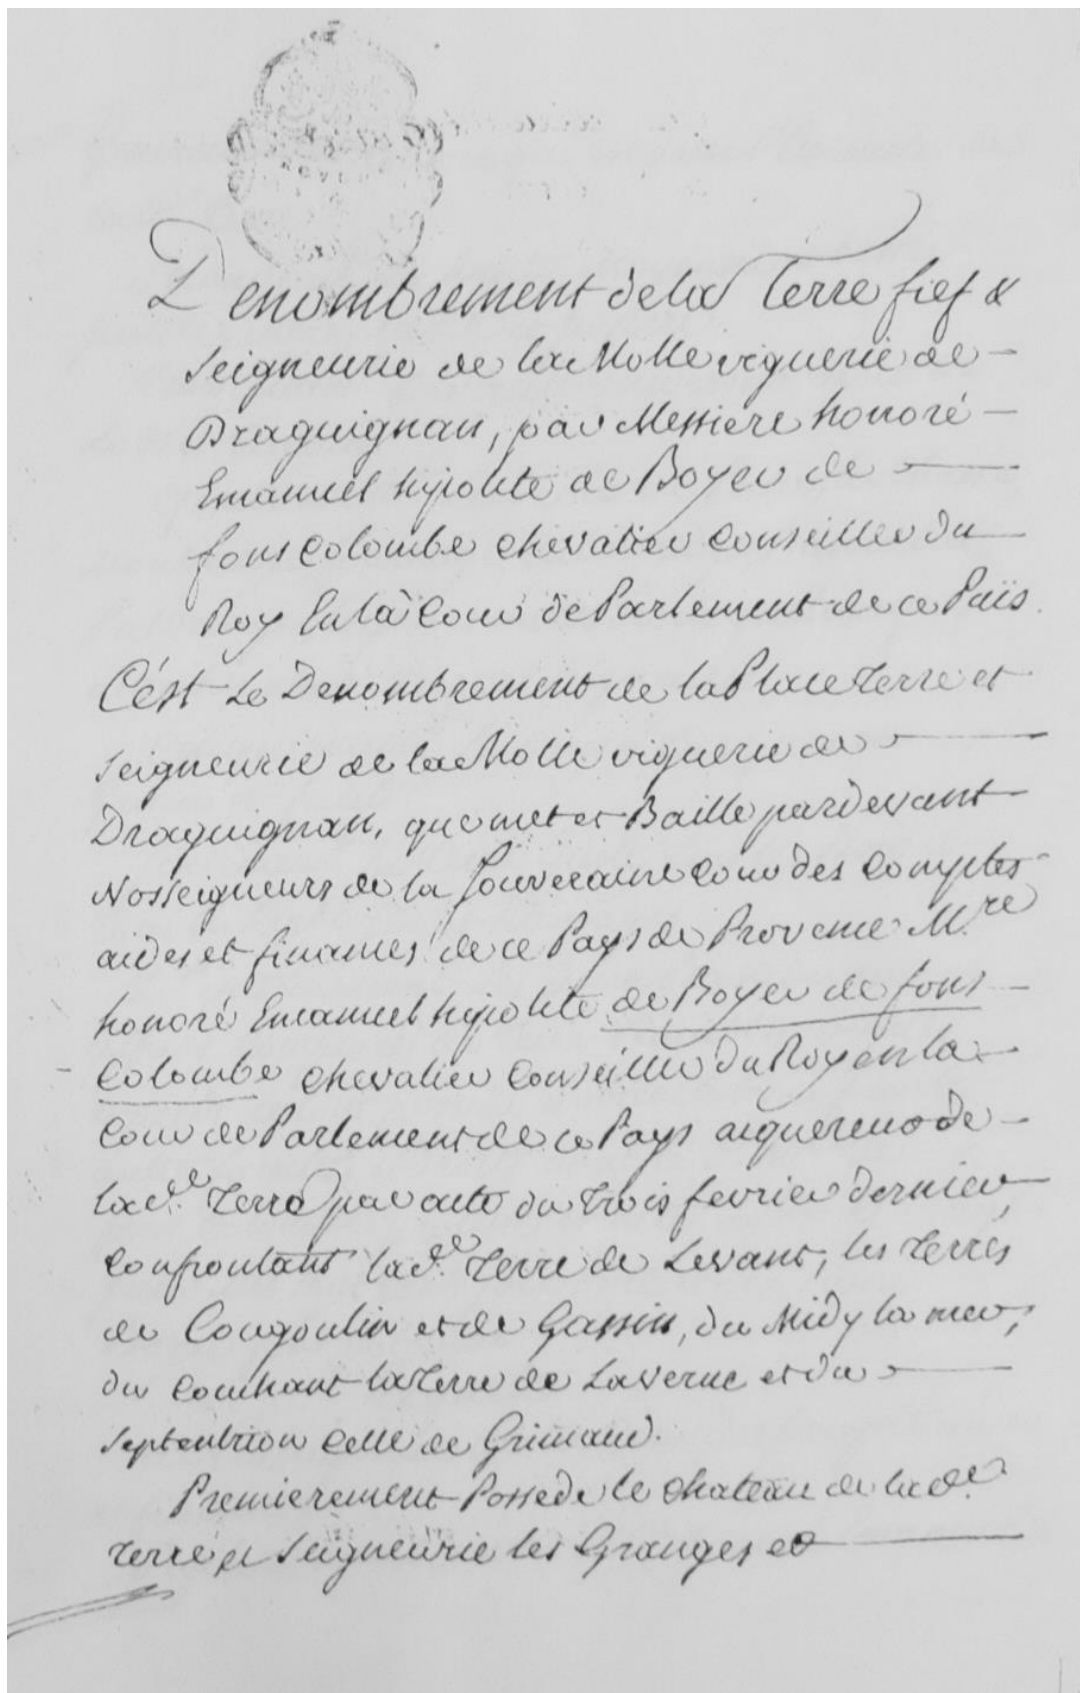 Denombrement de la Terre fief &
Seigneurie de la Molle viguerie de
Draguignan, par Messire honoré
Emanuel hipolite de Boyer de
fons Colombe chevalier Conseiller du
Roy En la Cour de Parlement de ce Païs
C'ést Le Denombrement de la Place terre et
Seigneurie de la Molle viguerie de
Draguignan, que met et Baille pardevant
Nosseigneurs de la Souveraine Cour des Comptes
aides et finances de ce Pays de Provence M.re
honoré Emanuel hipolite de Boyer de fons
Colombe chevalier Conseiller du Roy en la
Cour de Parlement de ce Pays aiquereur de
la d.e Terre par acte du trois fevrier dernier,
Confrontant la d.e Terre de Levant, les terres
de Cougoulin et de Gassin, du Midy la mer,
du Couchant la terre de Laverne et du
Septentrion Celle de Grimaud.
Premierement Possede le chateau de la d.e
terre et Seigneurie les Granges et